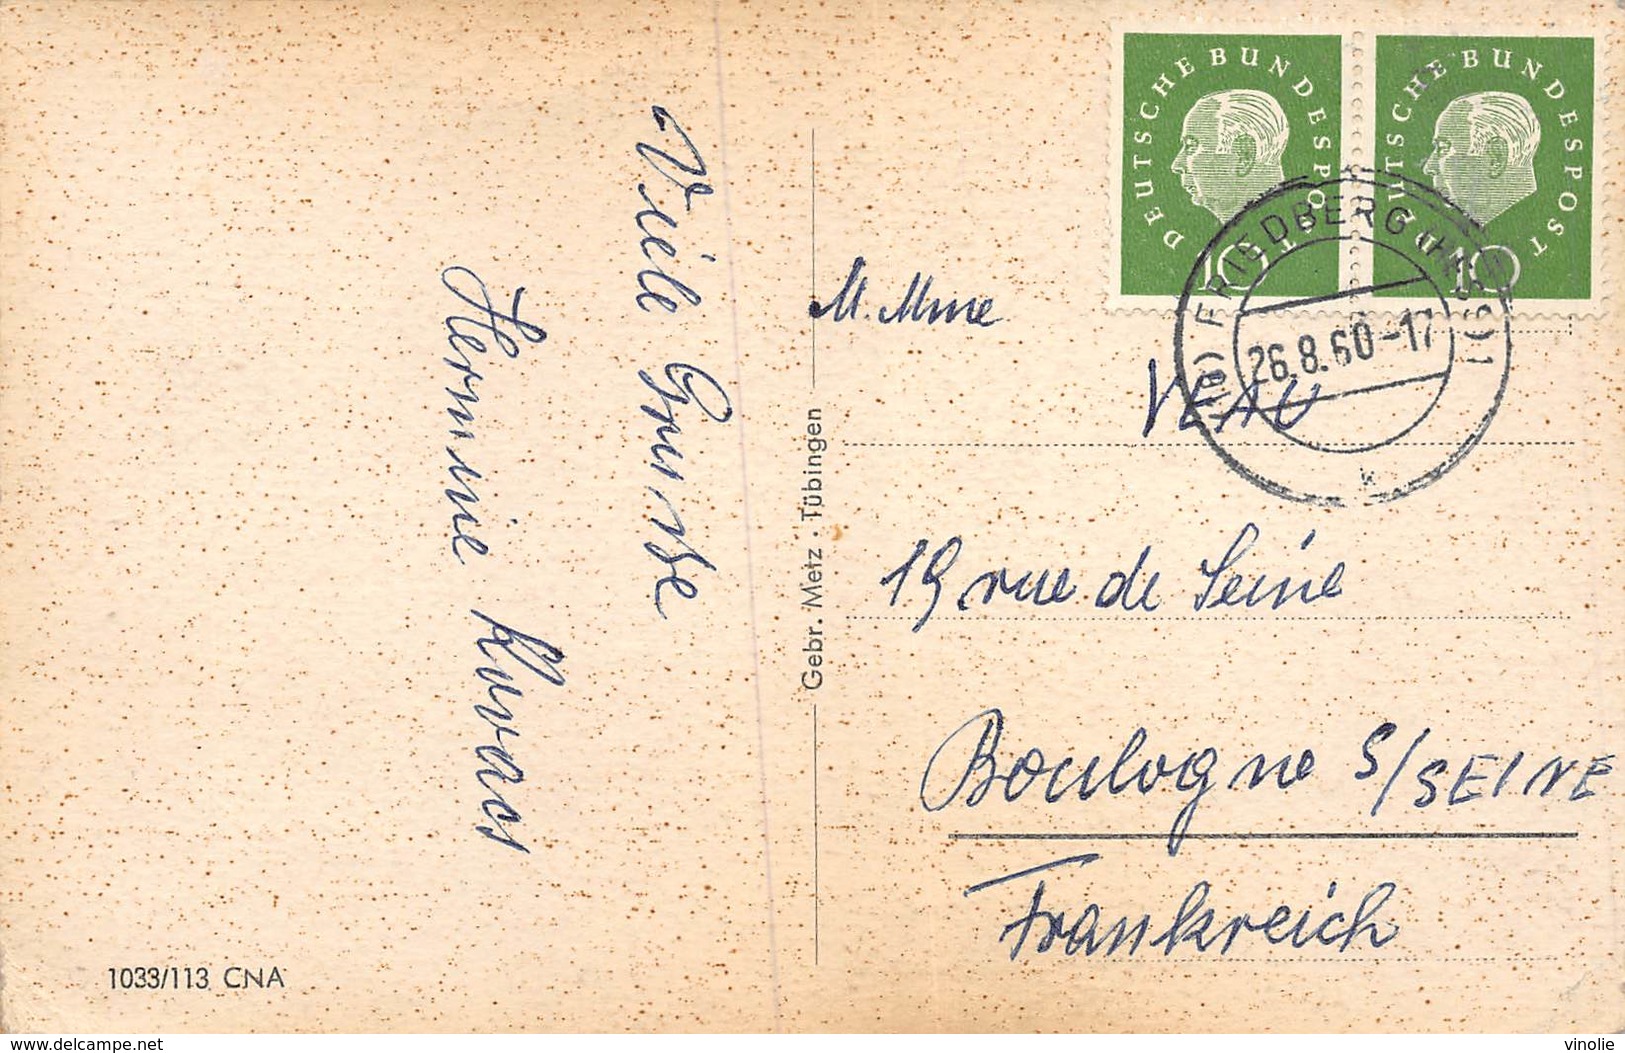 Viele Grüsse
Hermine Kovacs
1033/113 CNA
Gebr. Metz · Tübingen
DEUTSCHE BUNDESPOST
10
DEUTSCHE BUNDESPOST
10
(16) FRIEDBERG (HESS) 1
26.8.60-17
k
M. Mme
VEAU
19 rue de Seine
Boulogne S/SEINE
Frankreich
www.delcampe.net
vinolie